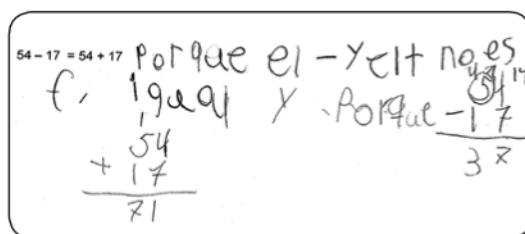 54 – 17 = 54 + 17 Porque el - y el + no es
f, igual y Porque
1
54
+ 17
71
4 14
54
- 17
37